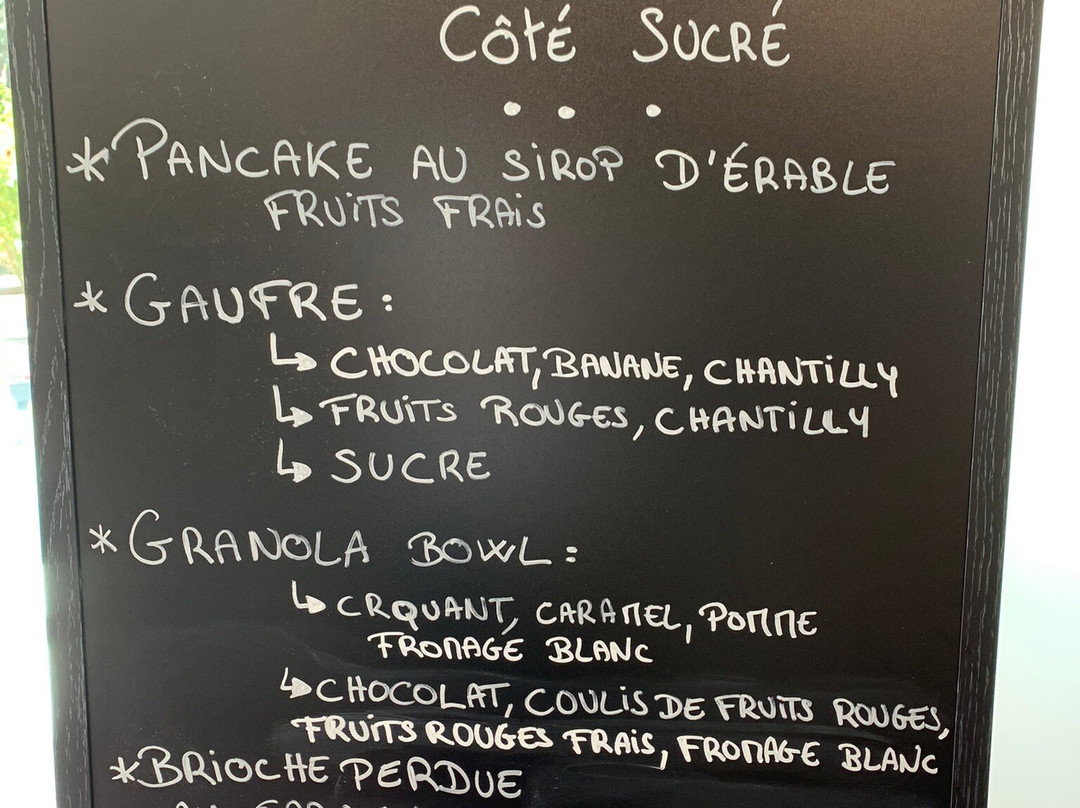 CÔTÉ SUCRÉ
* PANCAKE AU SIROP D'ÉRABLE
FRUITS FRAIS
* GAUFRE :
↳ CHOCOLAT, BANANE, CHANTILLY
↳ FRUITS ROUGES, CHANTILLY
↳ SUCRE
* GRANOLA BOWL :
↳ CRQUANT, CARAMEL, POMME
FROMAGE BLANC
↳ CHOCOLAT, COULIS DE FRUITS ROUGES,
FRUITS ROUGES FRAIS, FROMAGE BLANC
* BRIOCHE PERDUE